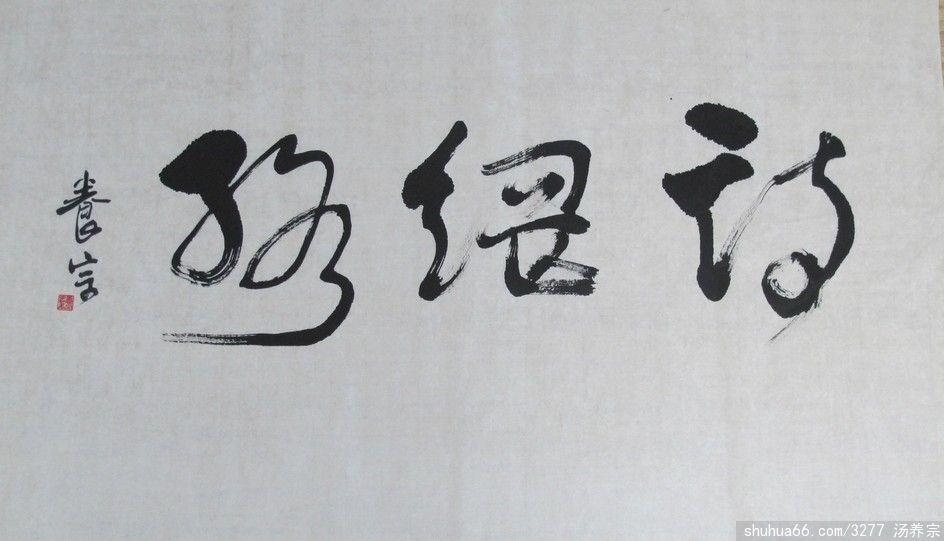 诗網络
養宗
shuhua66.com/3277 汤养宗